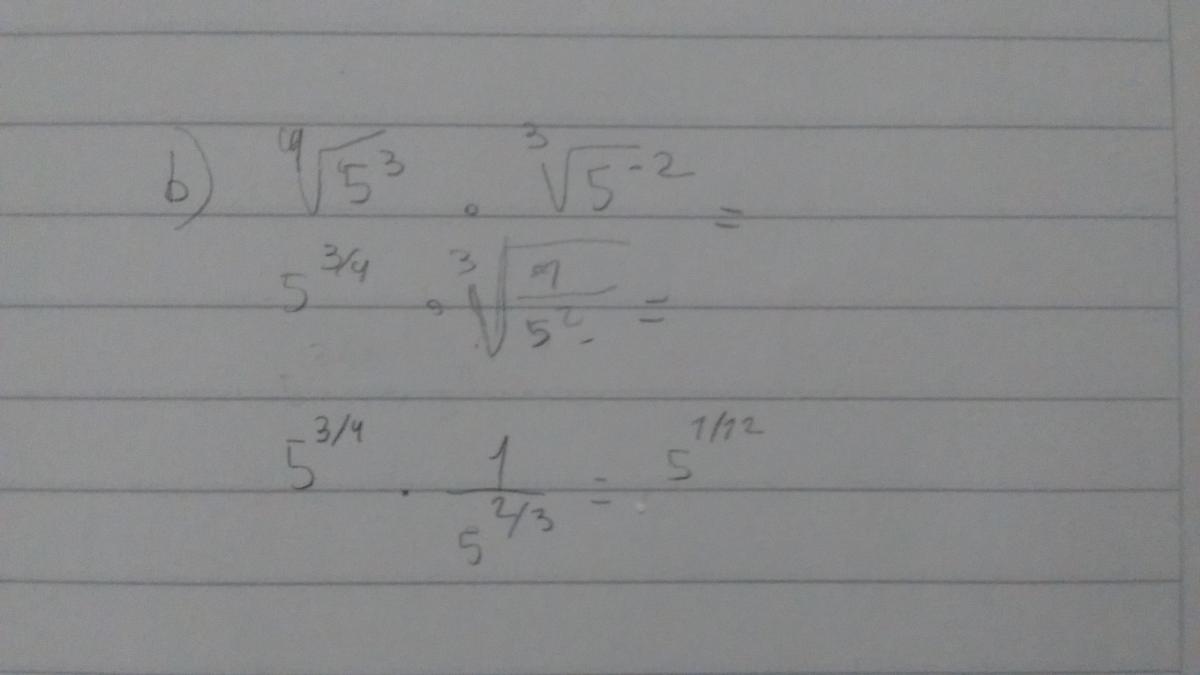 b) ⁴√5³ · ³√5⁻² =
5^3/4 · ³√(1/5²) =
5^3/4 · 1/5^2/3 = 5^1/12